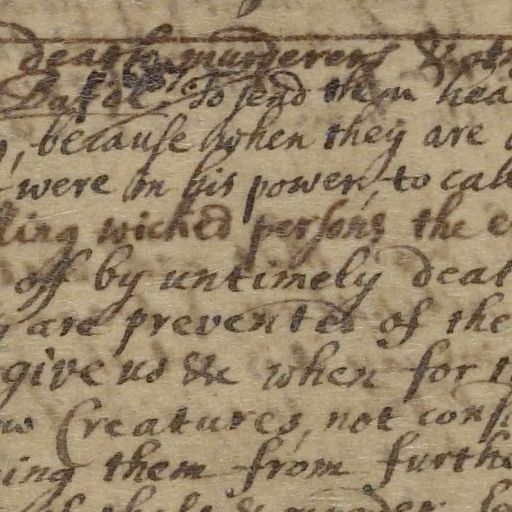 death murderers & oth
Basol To send them hea
, because when they are
were in his power, to cal
ling wicked persons the e
off by untimely deat
are prevented of the
give us &c when for
Creatures, not cons
ing them from furthe